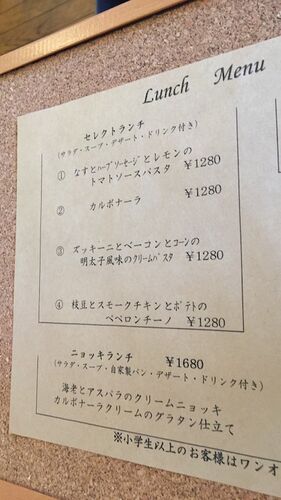 Lunch Menu
セレクトランチ
(サラダ・スープ・デザート・ドリンク付き)
① なすとハーブソーセージとレモンの
トマトソースパスタ ¥1280
② カルボナーラ ¥1280
③ ズッキーニとベーコンとコーンの
明太子風味のクリームパスタ ¥1280
④ 枝豆とスモークチキンとポテトの
ペペロンチーノ ¥1280
ニョッキランチ ¥1680
(サラダ・スープ・自家製パン・デザート・ドリンク付き)
海老とアスパラのクリームニョッキ
カルボナーラクリームのグラタン仕立て
※小学生以上のお客様はワンオ